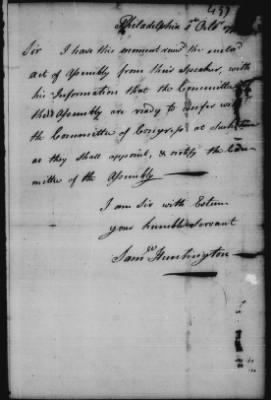 459
Philadelphia 1st Octr
Sir I have this moment recd the enclosd
act of Assembly from their Speaker, with
his Information that the Committee
the Assembly are ready to confer with
the Committee of Congress at such time
as they shall appoint, & notify the Com
mittee of the Assembly
I am Sir with Esteem
your humble Servant
Saml Huntington